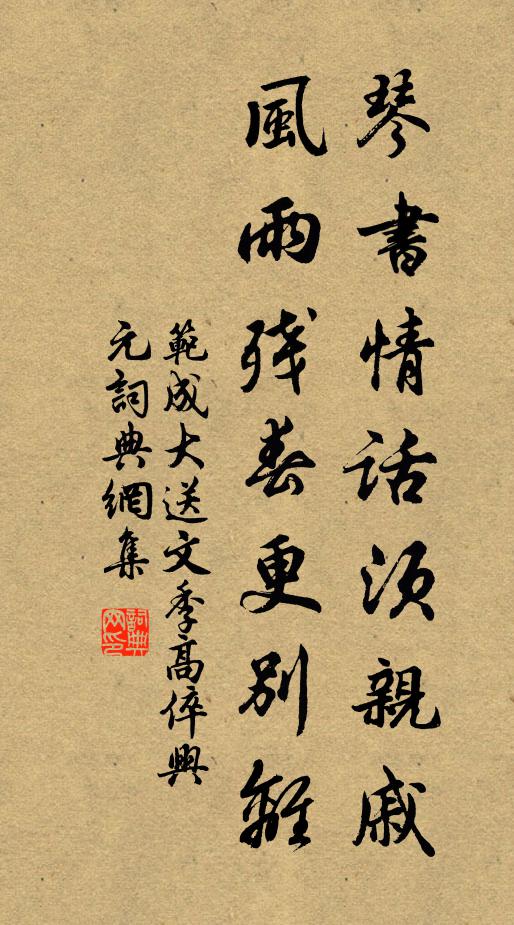 琴書情話須親戚
風雨残春更別離
範成大送文季高倅興
元詞典網集
詞典网印